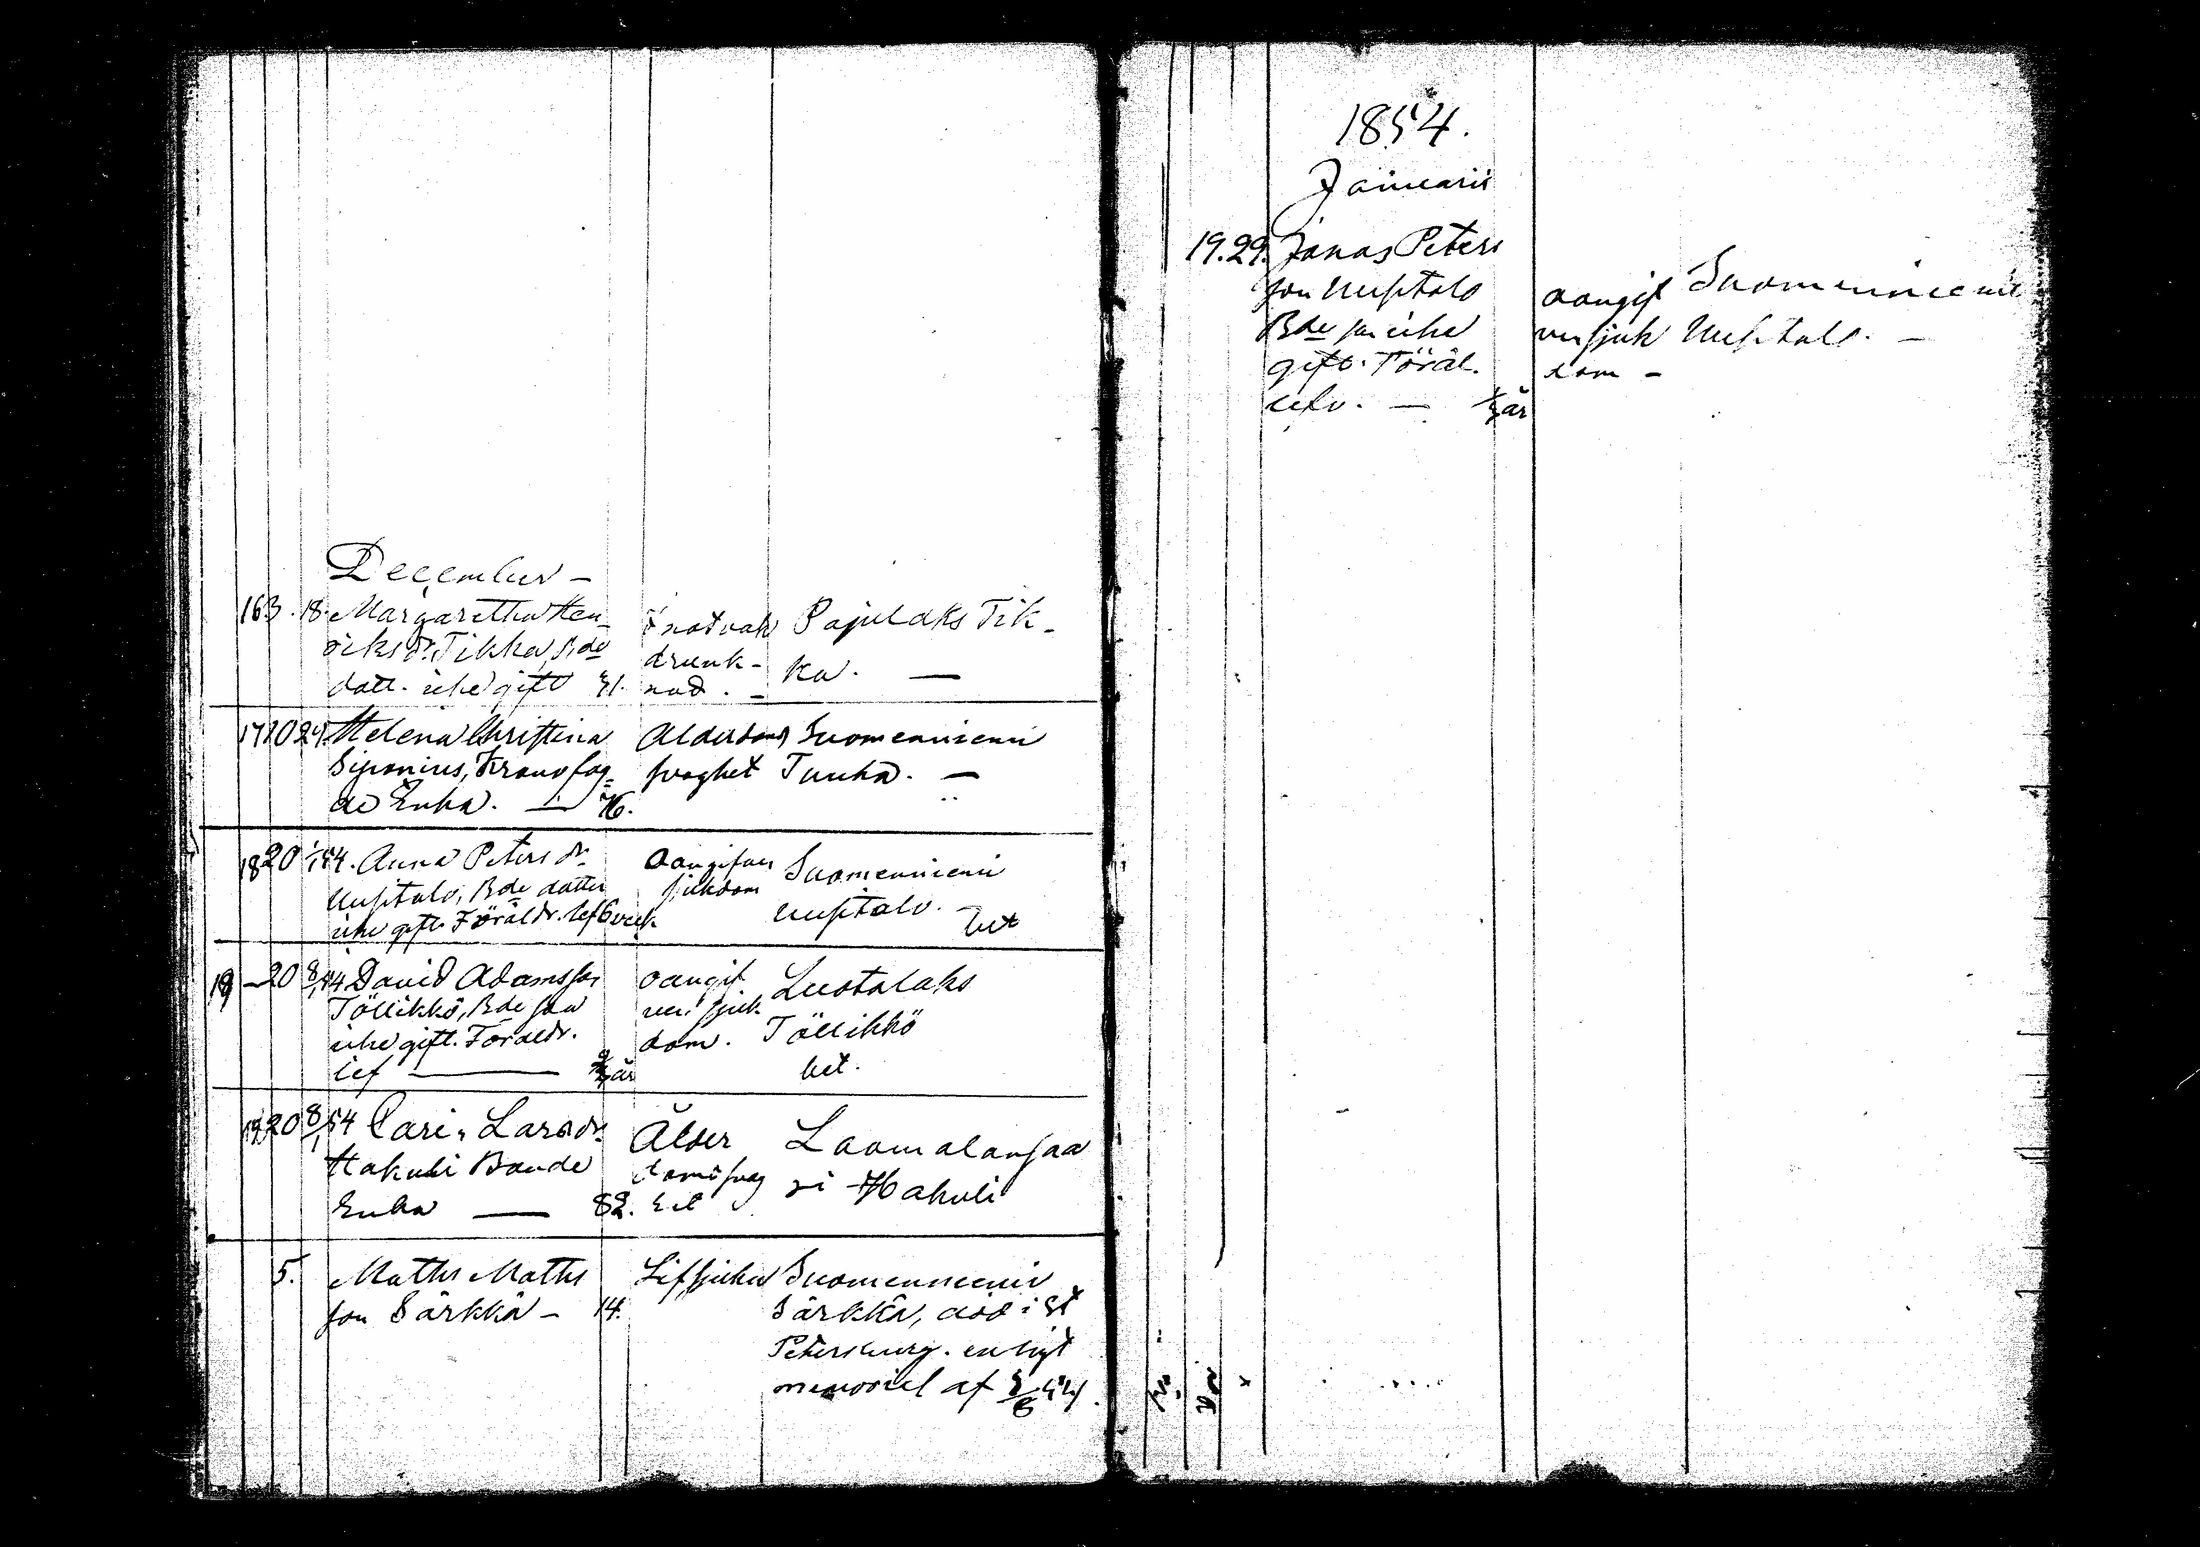 December –
163. 18. Margaretha Hen-
riksdr. Tikka, Bde
dott. icke gift 31.
i notvak
drunk-
nad. –
Pajulaks Tik-
ka. —
17 10 24. Helena Christina
Siponius, Kronofog-
de Enka. — 76.
Alderdoms
svaghet
Suomenniemi
Tuuha. —
18 20 1/1 54. Anna Petersdr.
Uusitalo, Bde dotter
icke gift. Föräldr. lef 6 veck
oangifven
sjukdom
Suomenniemi
Uusitalo. –
het
19 – 20 8/1 54 David Adamsson
Töllikkö, Bde son
icke gift. Föräldr.
lef — år
oangif
ven sjuk
dom.
Luotolaks
Töllikkö
het.
19 20 8/1 54 Carin Larsdr.
Hakuli Bonde
Enka — 82.
Ålder
doms svag
het
Laamalansaa
ri Hakuli
5. Maths Maths
son Särkkä – 14.
Lifsjuka
Suomenniemi
Särkkä, död i St
Petersburg. enligt
memorial af
1854.
Januarii
19. 29. Jonas Peters
son Uusitalo
Bde son icke
gift. Föräl.
lefv. — ½ år
oangif
ven sjuk
dom –
Suomenniemi
Uusitalo. –